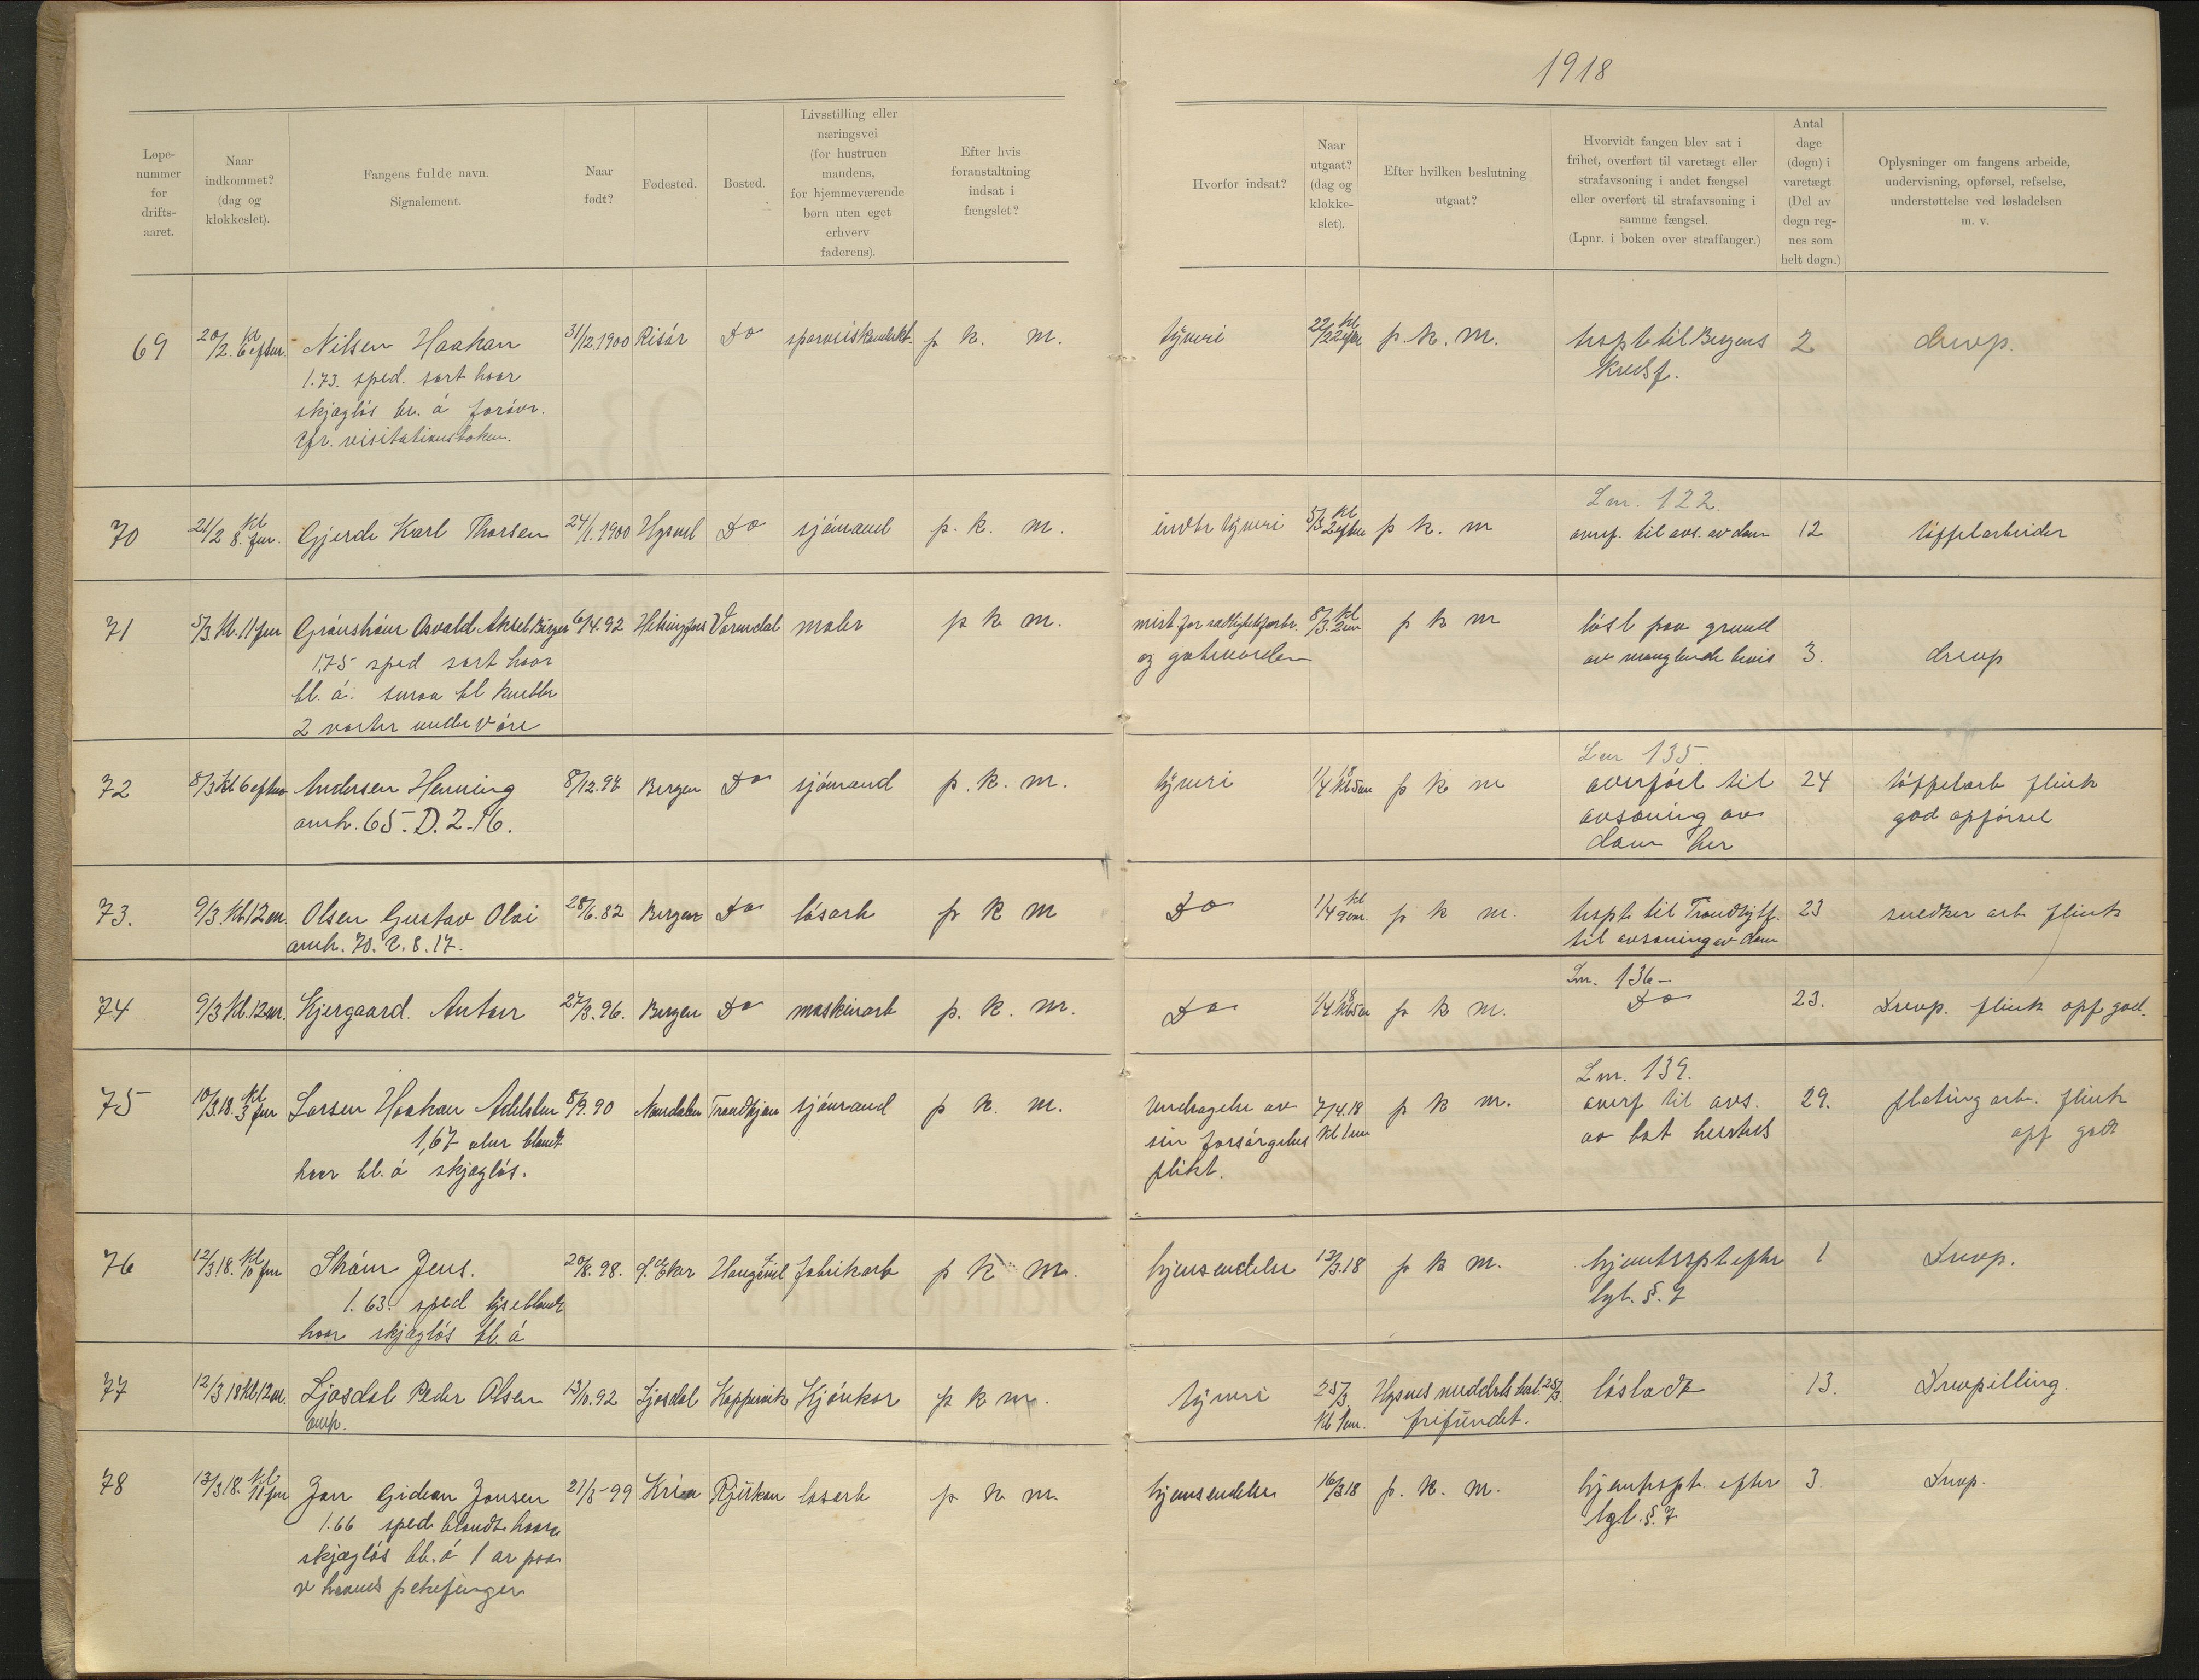 1918
Løpe-
nummer
for
drifts-
aaret.
Naar
indkommet?
(dag og
klokkeslet).
Fangens fulde navn.
Signalement.
Naar
født?
Fødested.
Bosted.
Livsstilling eller
næringsvei
(for hustruen
mandens,
for hjemmeværende
børn uten eget
erhverv
faderens).
Efter hvis
foranstaltning
indsat i
fængslet?
Hvorfor indsat?
Naar
utgaat?
(dag og
klokke-
slet).
Efter hvilken beslutning
utgaat?
Hvorvidt fangen blev sat i
frihet, overført til varetægt eller
strafavsoning i andet fængsel
eller overført til strafavsoning i
samme fængsel.
(Lpnr. i boken over straffanger.)
Antal
dage
(døgn) i
varetægt.
(Del av
døgn reg-
nes som
helt døgn.)
Oplysninger om fangens arbeide,
undervisning, opførsel, refselse,
understøttelse ved løsladelsen
m. v.
69 20/2. kl 6 efter Nilsen Haakan 31/12.1900 Risór Do p k. m. tyveri 22/2 kl 2 efter p. k. m. trspt til Bergens 2 drevp.
1.73. sped. sort haar kredsf.
skjægløs bl. ó forövr.
Cfr. visitationsboken.
Lnr. 122.
70 21/2 kl 8. for. Gjerde Karl Thorsen 24/1.1900 Do sjómand p. k. m. indbr tyveri 5/3 kl 2 efter p k. m overf. til avs. av dom 12 tóffelarbeider
71 5/3 kl. 11 for Osvald Aksel Birger 6/4.92 maler p k m. 8/3. kl p k m lóst paa grund
1,75 sped sort haar og av manglende bevis 3. drevp
bl. ó.
2 vorter under v óre
Lnr 135.
72 8/3 kl 6 efter Andersen Henning 8/12.97 Bergen Do sjómand p. k. m. tyveri 1/4 18 kl 5 em p k m overfórt til 24 tóffelarb flink
anh. 65. D. 2. 16. avsoning av god opfórsel
dom her
73. 9/3. kl 12 m. Olsen Gustav Olai 28/6.82 Bergen Do lósarb p k m Do 1/4 kl p k m. trspt til Trondhjf. 23 snedker arb flink
anh. 70. C. 8. 17. til avsoning av dom
Lnr. 136-
74 9/3 kl. 12 m. Kjergaard. Anton 27/3.96. Bergen Do maskinarb p. k. m. Do 1/4 18 kl 5 em p k m. Do 23. Drevp. flink opf god.
Lnr. 139.
75 10/3.18. kl 3 for Larsen Haakan Adelsten 8/9.90 Namdalen Trondhjem sjómand p k. m. Undragelse av 7/4.18 p k m. overf til avs. 29. flating arb. flink
1,67 blondt sin forsórgelses kl 1 em av bót opf godt
haar bl. ó skjægløs. plikt.
76 12/3.18. kl 10 for Skóin Jens. 20/8.98. Ó. Eker Haugesund fabrikarb p k m. hjemsendelse 13/3.18 p k m. hjemtrspt efter 1 Drevp.
1.63. sped lyseblondt lgl. §. 7
haar skjægløs bl. ó
77 12/3 18 kl 12 m. Ljosdal Peder Olsen 13/10.92 Ljosdal Koppervik Kjórekar p k m. tyveri 25/3 meddels dom 25/3. lósladt 13. Drevpilling.
anh. kl 1 em. frifundet.
78 13/3 18. kl 11 for Jon Gidion Jonsen 21/8-99 Kr.ia Rjukan lósarb p k m. hjemsendelse 16/3 18 p. k. m. hjemtrspt. efter 3. Drevp.
1.66 sped blondt haar lgl. §. 7
skjægløs bl. ó 1 ar paa
v haands pekefinger